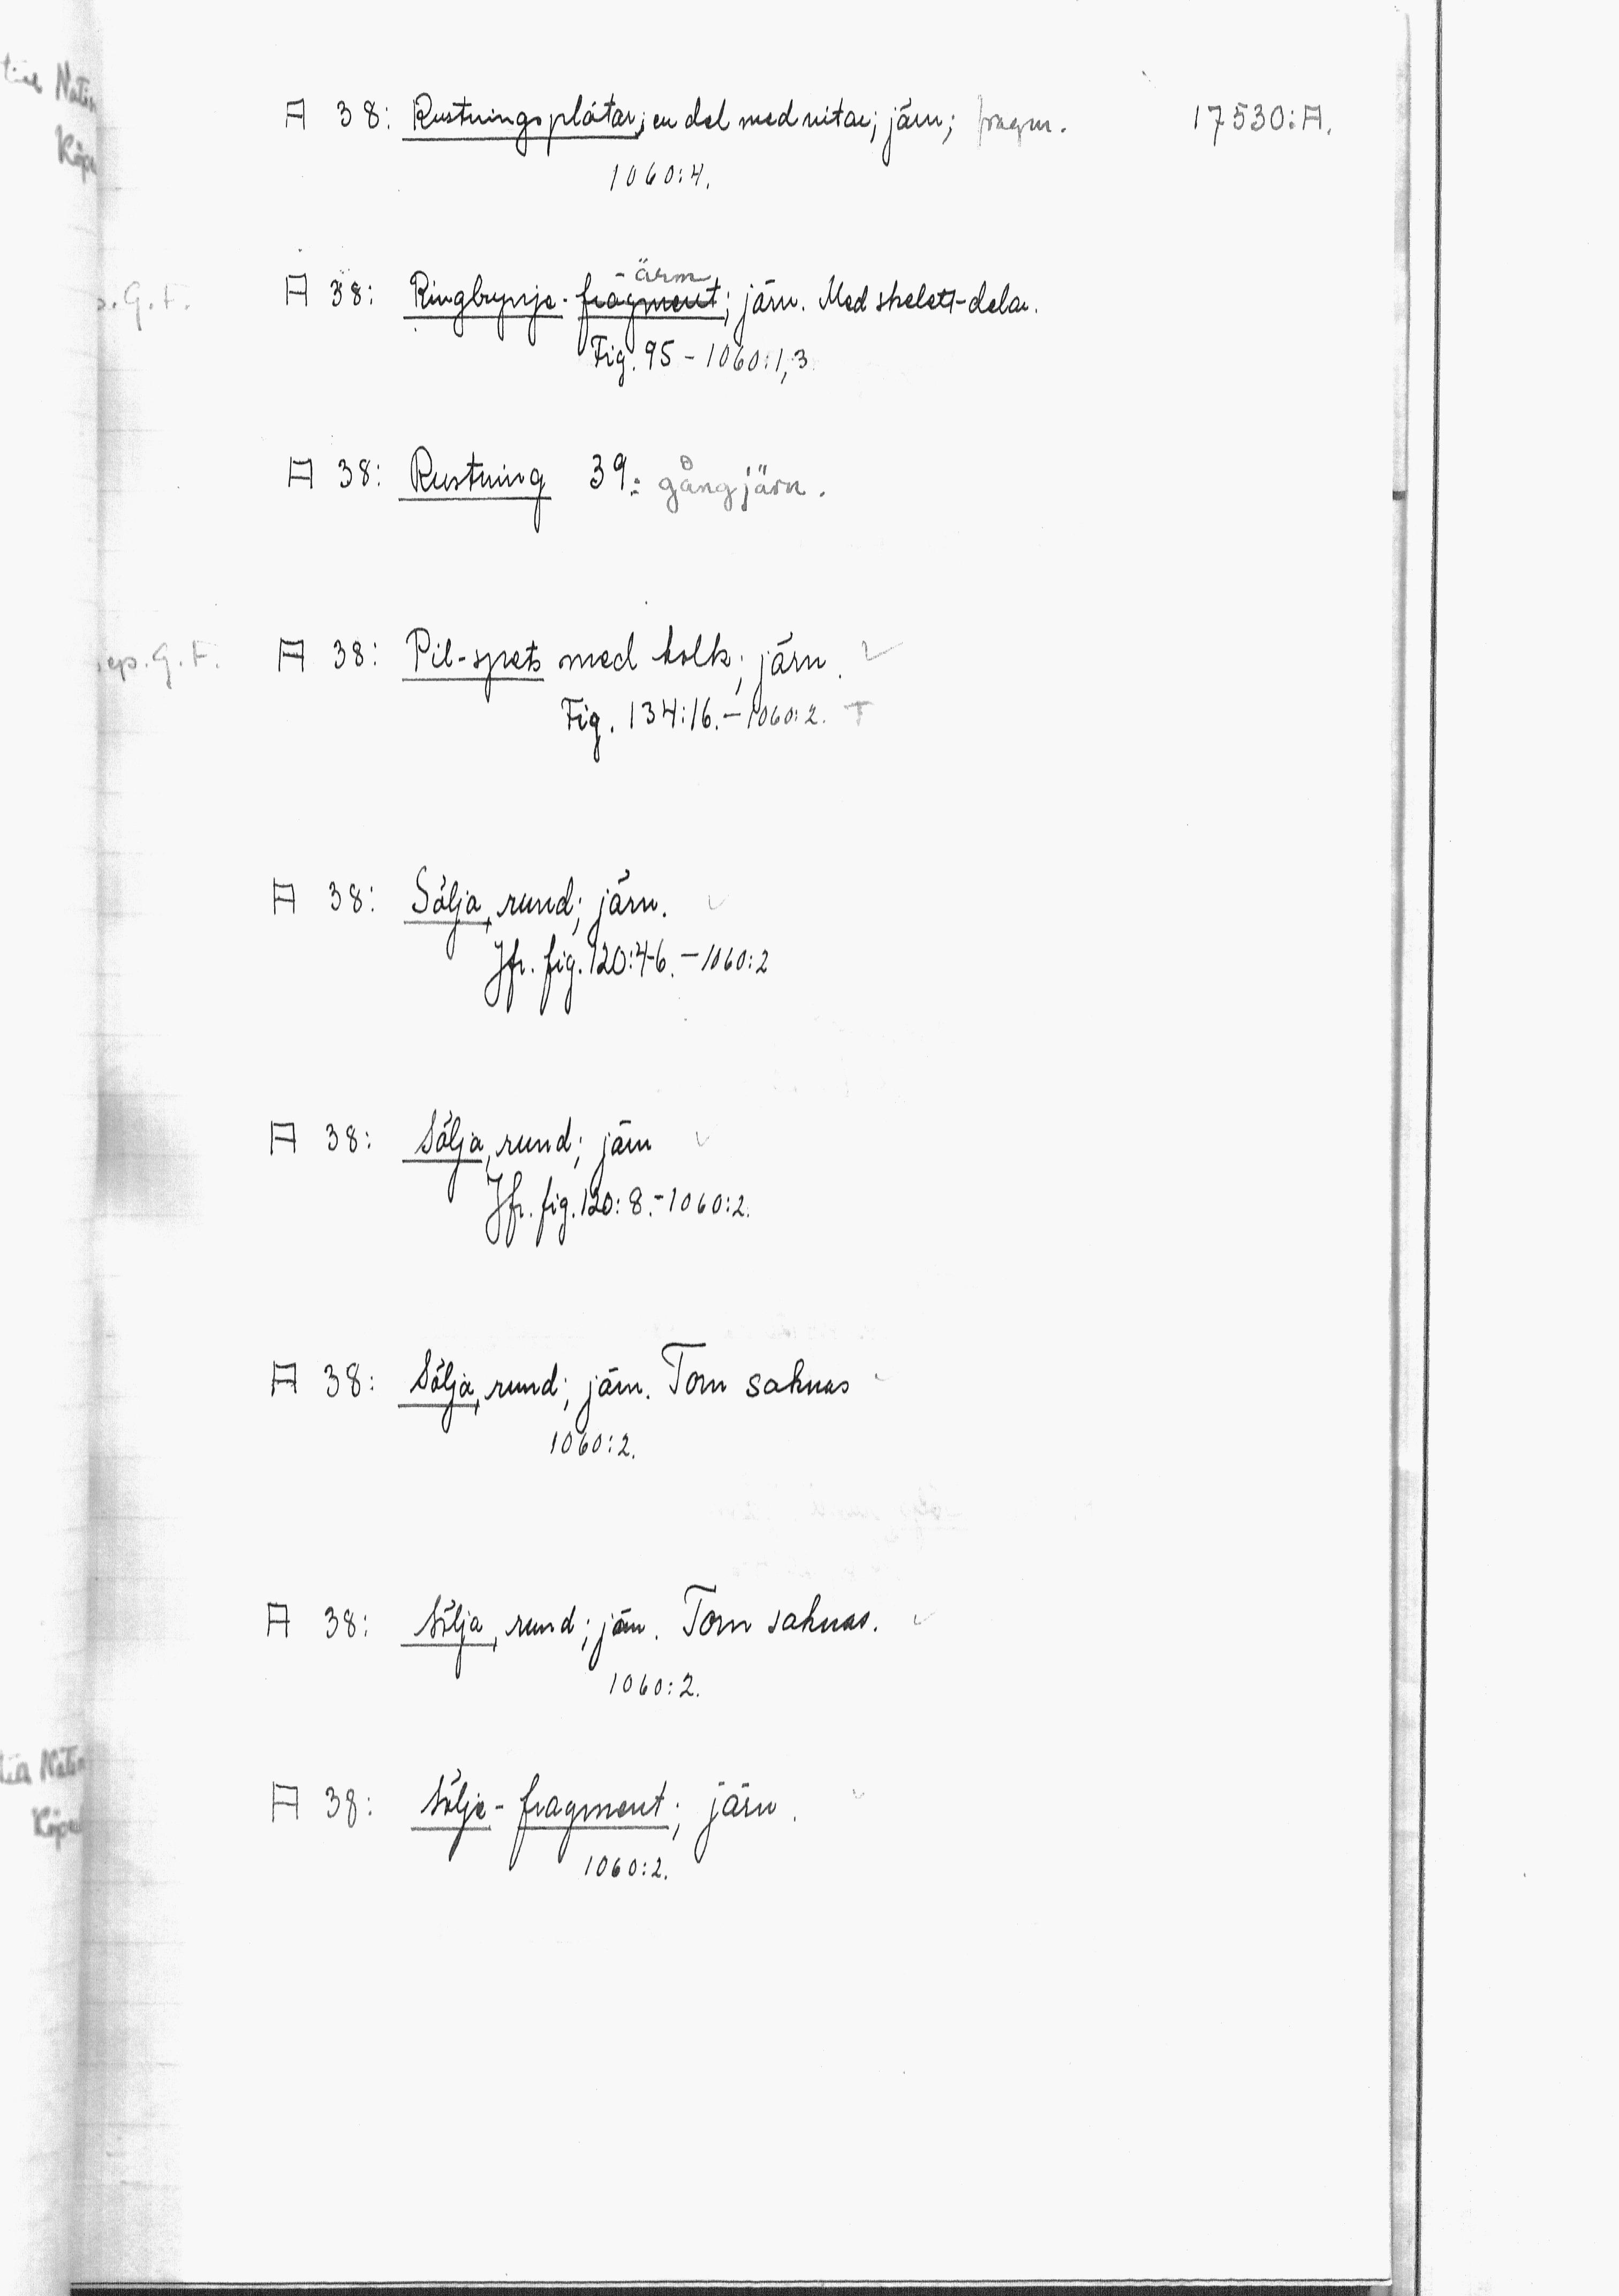 A 38: Rustningsplåtar; en del med nitar; järn; fragm. 17530:A.
1060:4.
-ärm
A 38: Ringbrynje-fragment; järn. Med skelett-delar.
Fig. 95 - 1060:1,3
A 38: Rustning 39: gångjärn.
ep. G. F. A 38: Pil-spets med holk; järn.
Fig. 134:16. - 1060:2. T
A 38: Sölja, rund; järn.
Jfr. fig. 120:4-6. - 1060:2
A 38: Sölja, rund; järn
Jfr. fig. 120:8. - 1060:2.
A 38: Sölja, rund; järn. Torn saknas
1060:2.
A 38: Sölja, rund; järn. Torn saknas.
1060:2.
A 38: Sölje-fragment; järn.
1060:2.